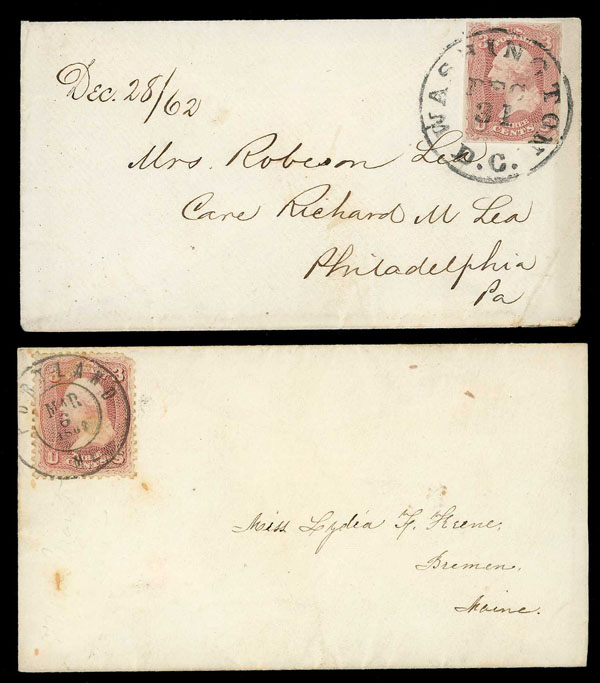 Dec. 28/62
WASHINGTON
DEC
31
D.C.
3
U
THREE
CENTS
Mrs. Robeson Lea
Care Richard M Lea
Philadelphia
Pa
PORTLAND
MAR
6
3
U
CENTS
Miss Lydia F. Keene,
Bremen,
Maine.